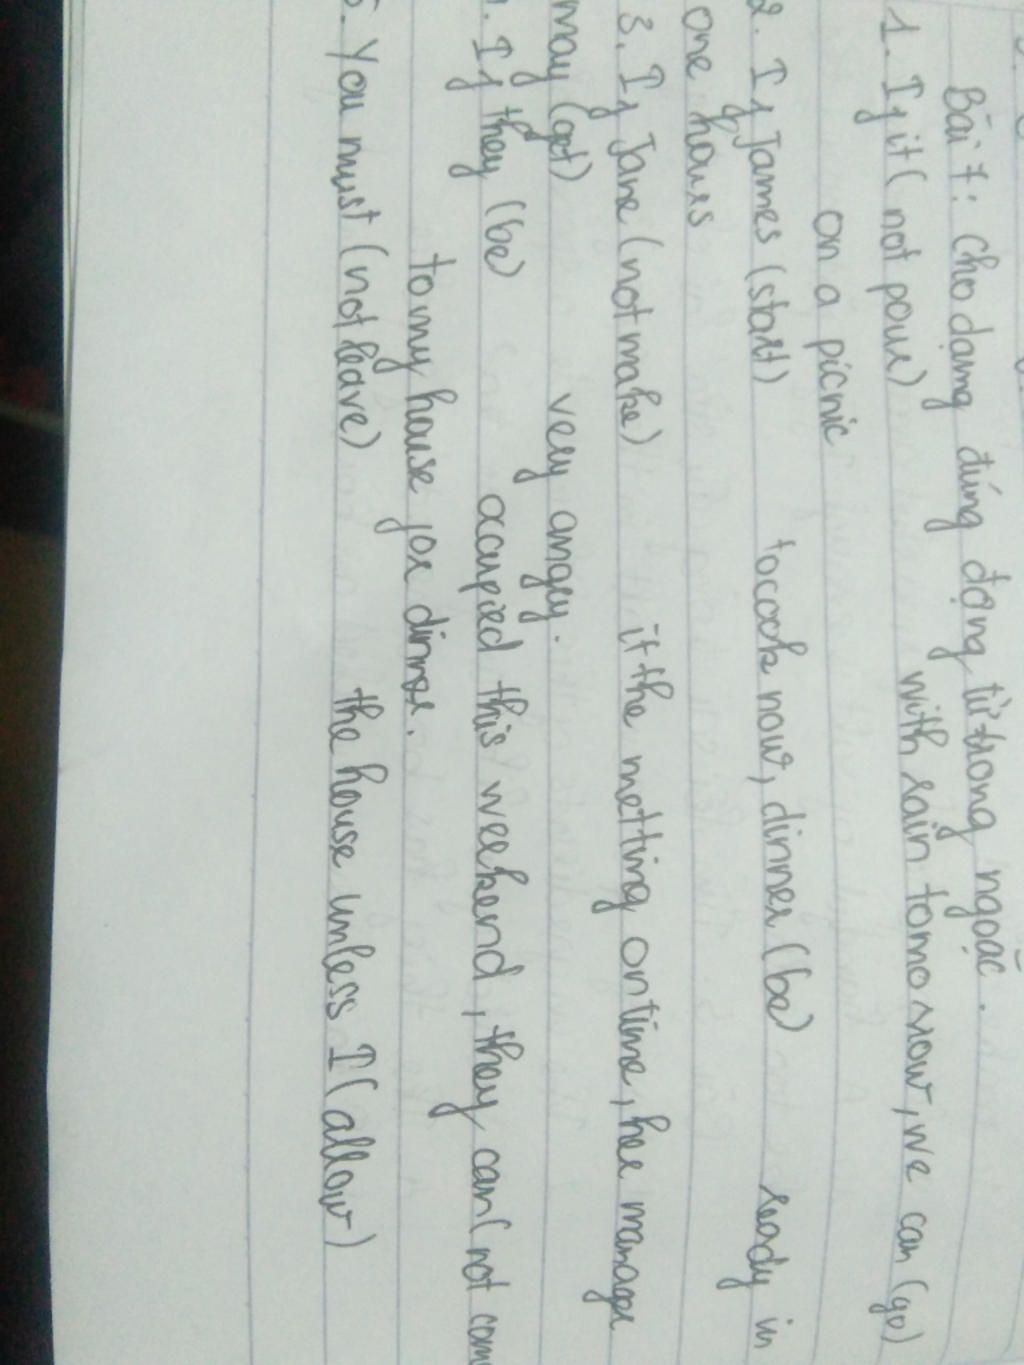 Bài 7: Cho dạng đúng động từ trong ngoặc.
1. If it ( not pour) with rain tomorrow, we can (go)
on a picnic
2. If James (start) to cook now, dinner (be) ready in
one hours
3. If Jane (not make) it the metting on time, her manager
may (get) very angry.
. If they (be) occupied this weekend, they can( not com
to my house for dinner.
5. You must (not leave) the house unless I (allow)